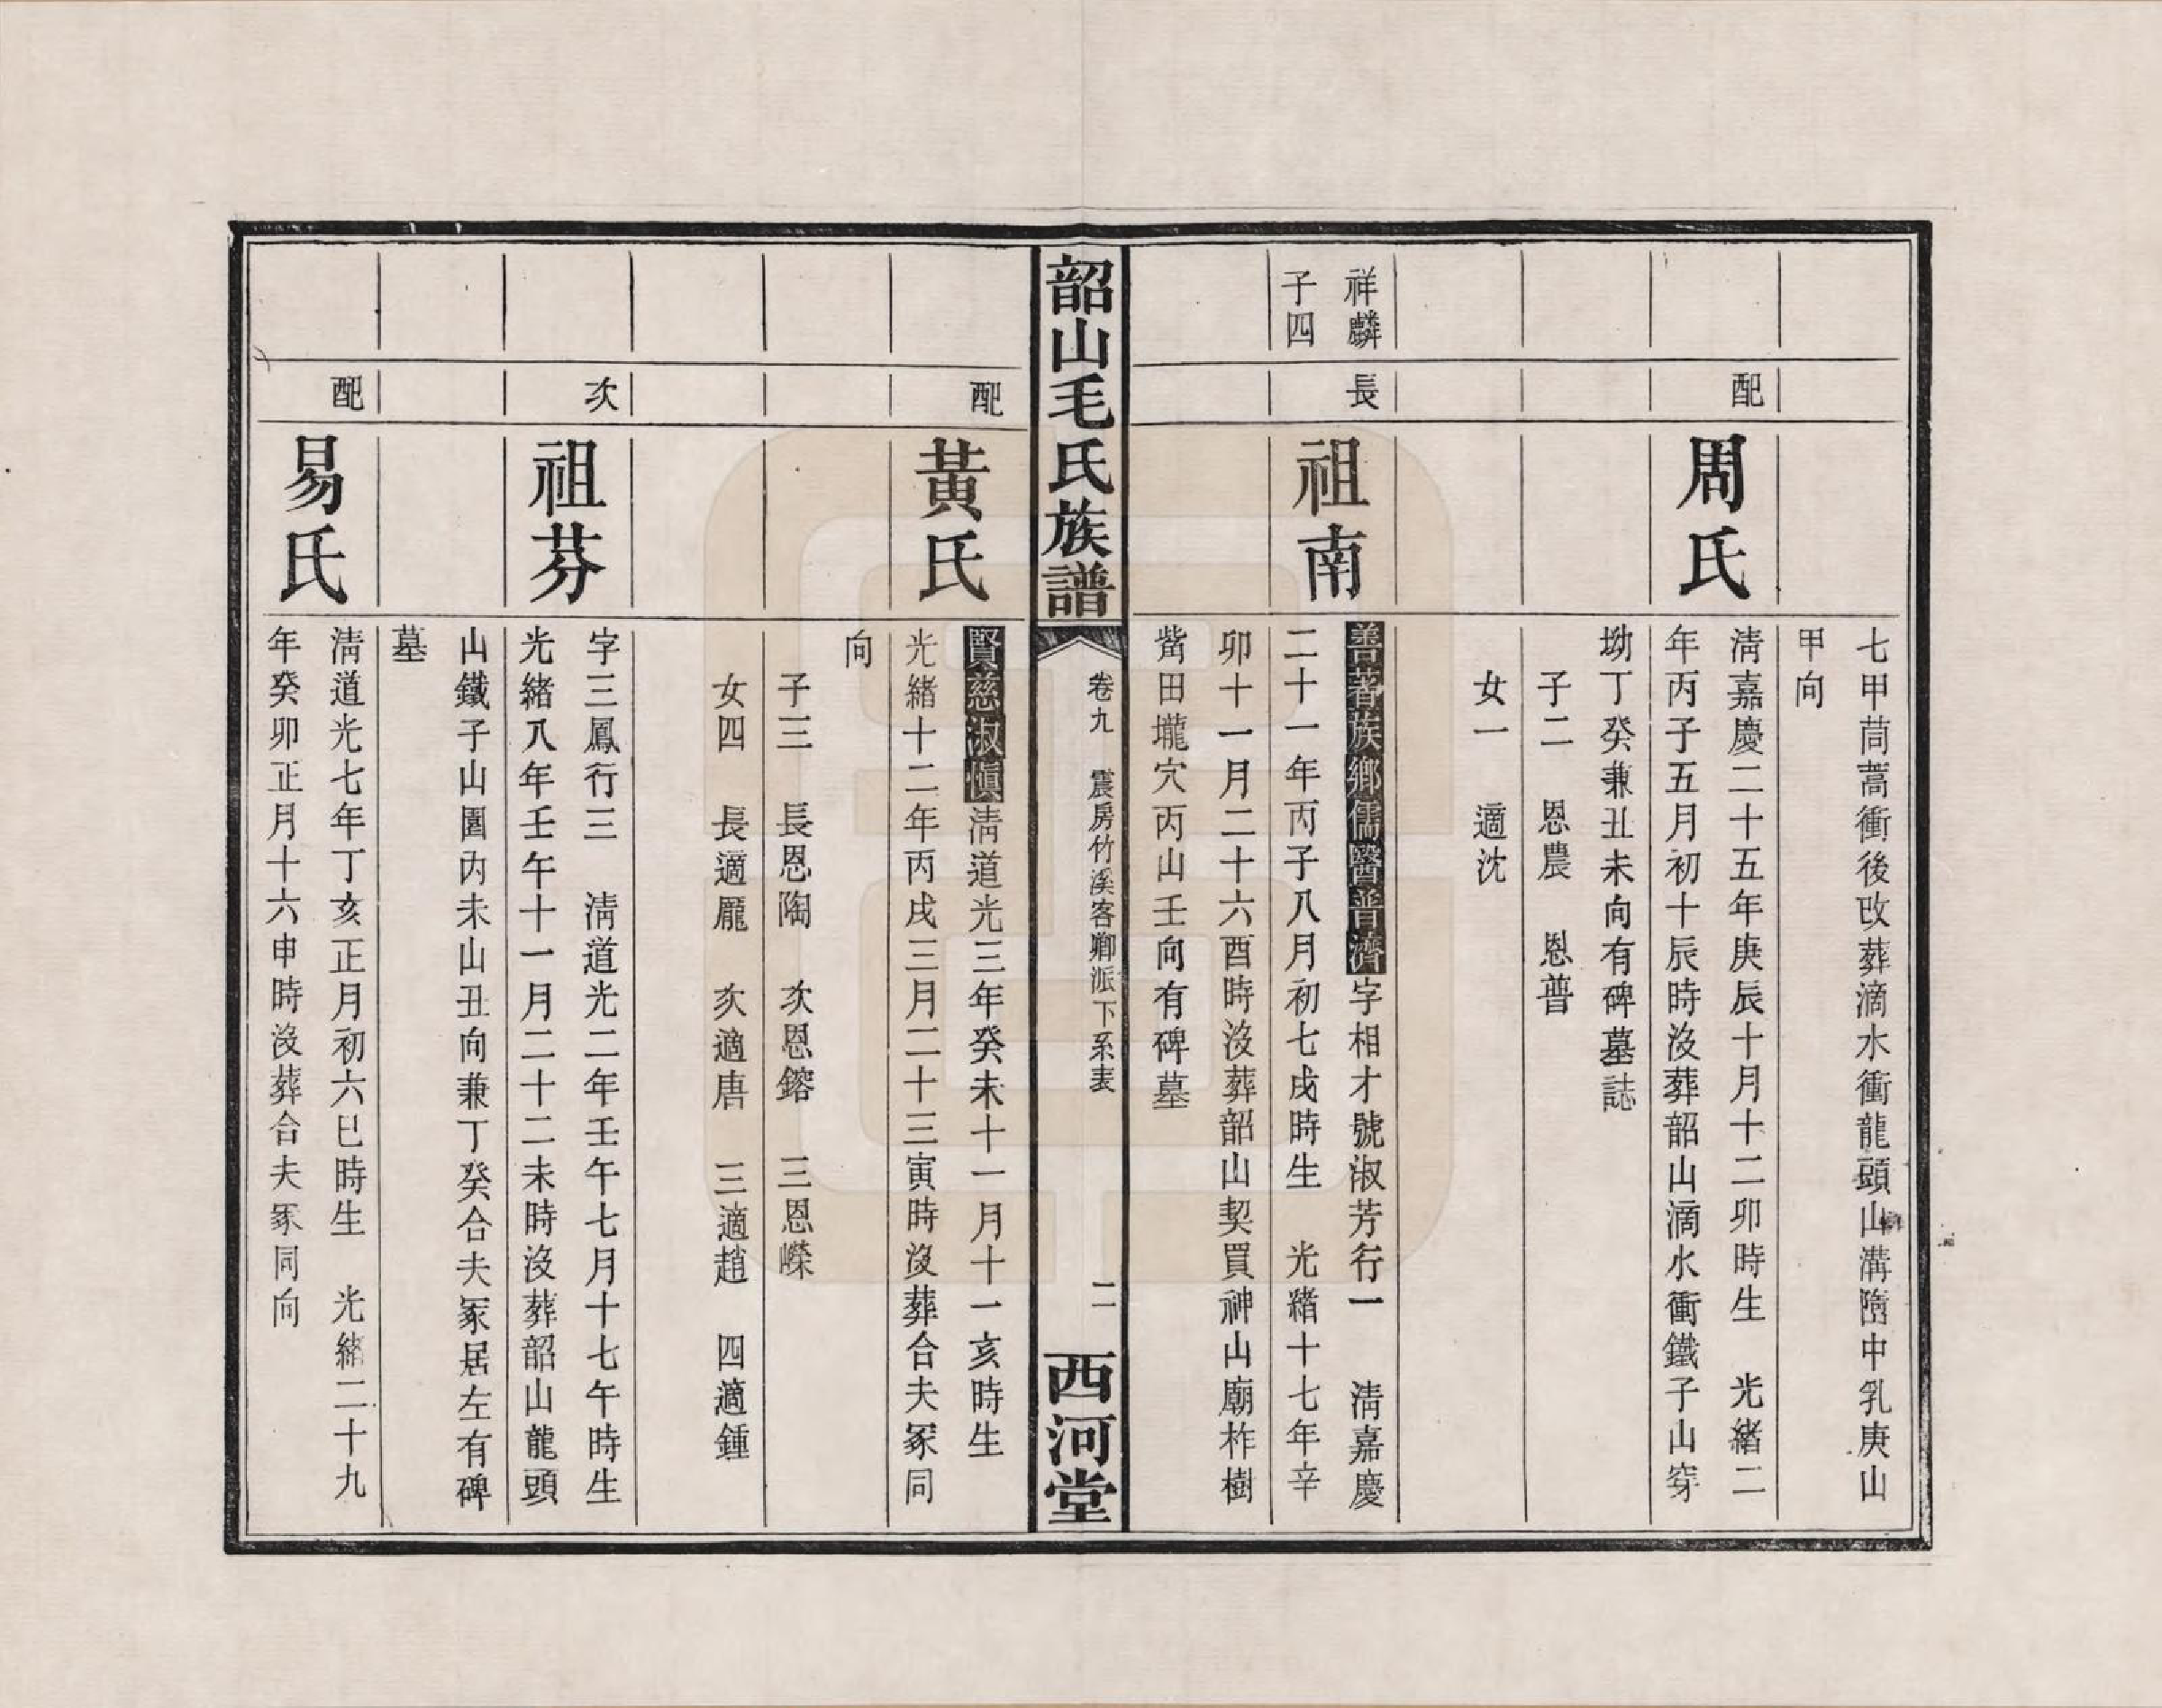 七甲茼蒿衝後改葬滴水衝龍頭山溝墮中乳庚山
甲向
配
周氏
清嘉慶二十五年庚辰十月十二卯時生 光緒二
年丙子五月初十辰時沒葬韶山滴水衝鐵子山穿
坳丁癸兼丑未向有碑墓誌
子二 恩農 恩普
女一 適沈
祥麟
子四
長
祖南
善著族鄉儒醫普濟字相才號淑芳行一 清嘉慶
二十一年丙子八月初七戌時生 光緒十七年辛
卯十一月二十六酉時沒葬韶山契買神山廟柞樹
觜田壠穴丙山壬向有碑墓
韶山毛氏族譜
卷九 震房竹溪客卿派下系表
二
西河堂
配
黃氏
賢慈淑慎清道光三年癸未十一月十一亥時生
光緒十二年丙戌三月二十三寅時沒葬合夫冢同
向
子三 長恩陶 次恩鎔 三恩嶸
女四 長適龐 次適唐 三適趙 四適鍾
次
祖芬
字三鳳行三 清道光二年壬午七月十七午時生
光緒八年壬午十一月二十二未時沒葬韶山龍頭
山鐵子山園內未山丑向兼丁癸合夫冢居左有碑
墓
配
易氏
清道光七年丁亥正月初六巳時生 光緒二十九
年癸卯正月十六申時沒葬合夫冢同向